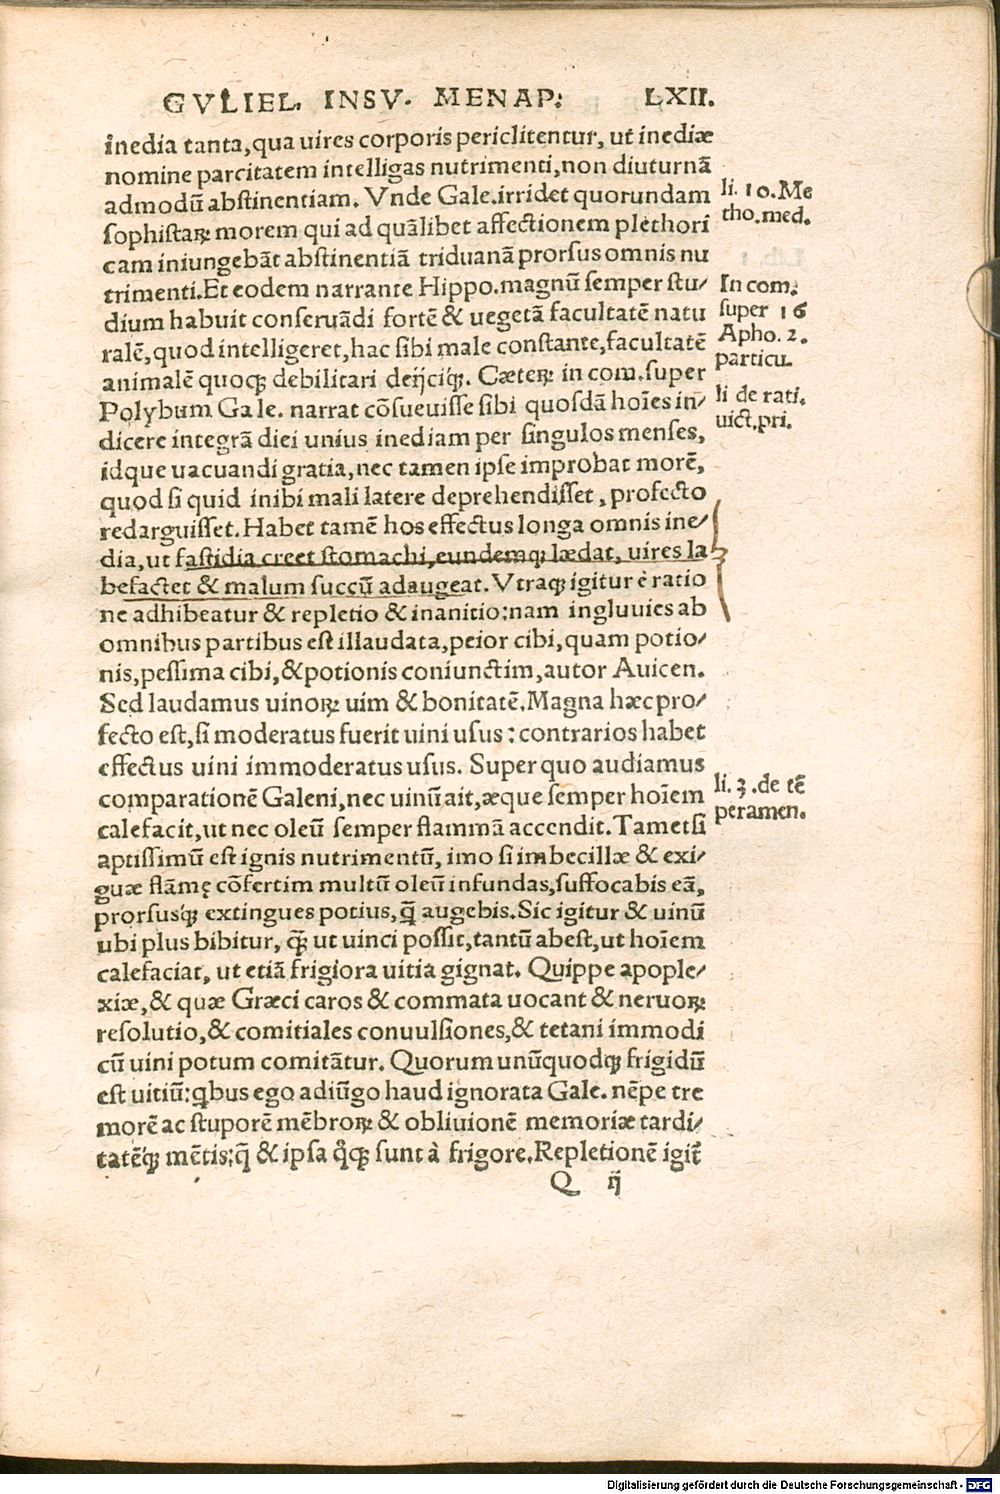 GVLIEL. INSV. MENAP: LXII.
inedia tanta,qua uires corporis periclitentur, ut inediæ
nomine parcitatem intelligas nutrimenti,non diuturnā
admodū abstinentiam. Vnde Gale.irridet quorundam
sophistaꝝ morem qui ad quālibet affectionem plethori
cam iniungebāt abstinentiā triduanā prorsus omnis nu
trimenti.Et eodem narrante Hippo.magnū semper stu/
dium habuit conseruādi fortē & uegetā facultatē natu
ralē,quod intelligeret,hac sibi male constante,facultatē
animalē quoqꝫ debilitari deijciqꝫ. Cæteꝝ in com.super
Polybum Gale. narrat cōsueuisse sibi quosdā hoīes in/
dicere integrā diei unius inediam per singulos menses,
idque uacuandi gratia,nec tamen ipse improbat morē,
quod si quid inibi mali latere deprehendisset, profecto
redarguisset. Habet tamē hos effectus longa omnis ine/
dia,ut fastidia creet stomachi,eundemqꝫ lædat, uires la
befactet & malum succū adaugeat. Vtraqꝫ igitur è ratio
ne adhibeatur & repletio & inanitio:nam ingluuies ab
omnibus partibus est illaudata,peior cibi,quam potio/
nis,pessima cibi,&potionis coniunctim,autor Auicen.
Sed laudamus uinoꝝ uim & bonitatē.Magna hæc pro/
fecto est,si moderatus fuerit uini usus: contrarios habet
effectus uini immoderatus usus. Super quo audiamus
comparationē Galeni,nec uinū ait,æque semper hoīem
calefacit,ut nec oleū semper flammā accendit.Tametsi
aptissimū est ignis nutrimentū, imo si imbecillæ & exi/
guæ flāmę cōfertim multū oleū infundas,suffocabis eā,
prorsusqꝫ extingues potius,q̄ augebis.Sic igitur & uinū
ubi plus bibitur, q̄ ut uinci possit,tantū abest,ut hoīem
calefaciat, ut etiā frigiora uitia gignat. Quippe apople/
xiæ,& quæ Græci caros & commata uocant & neruoꝝ
resolutio,& comitiales conuulsiones,& tetani immodi
cū uini potum comitātur. Quorum unūquodqꝫ frigidū
est uitiū:qbus ego adiūgo haud ignorata Gale. nēpe tre
morē ac stuporē mēbroꝝ & obliuionē memoriæ tardi/
tatēqꝫ mētis:q̄ & ipsa qqꝫ sunt à frigore.Repletionē igit̃
Q ij
li. 10.Me
tho.med.
In com.
super 16
Apho.2.
particu.
li de rati.
uict.pri.
li.3.de tē
peramen.
Digitalisierung gefördert durch die Deutsche Forschungsgemeinschaft - DFG